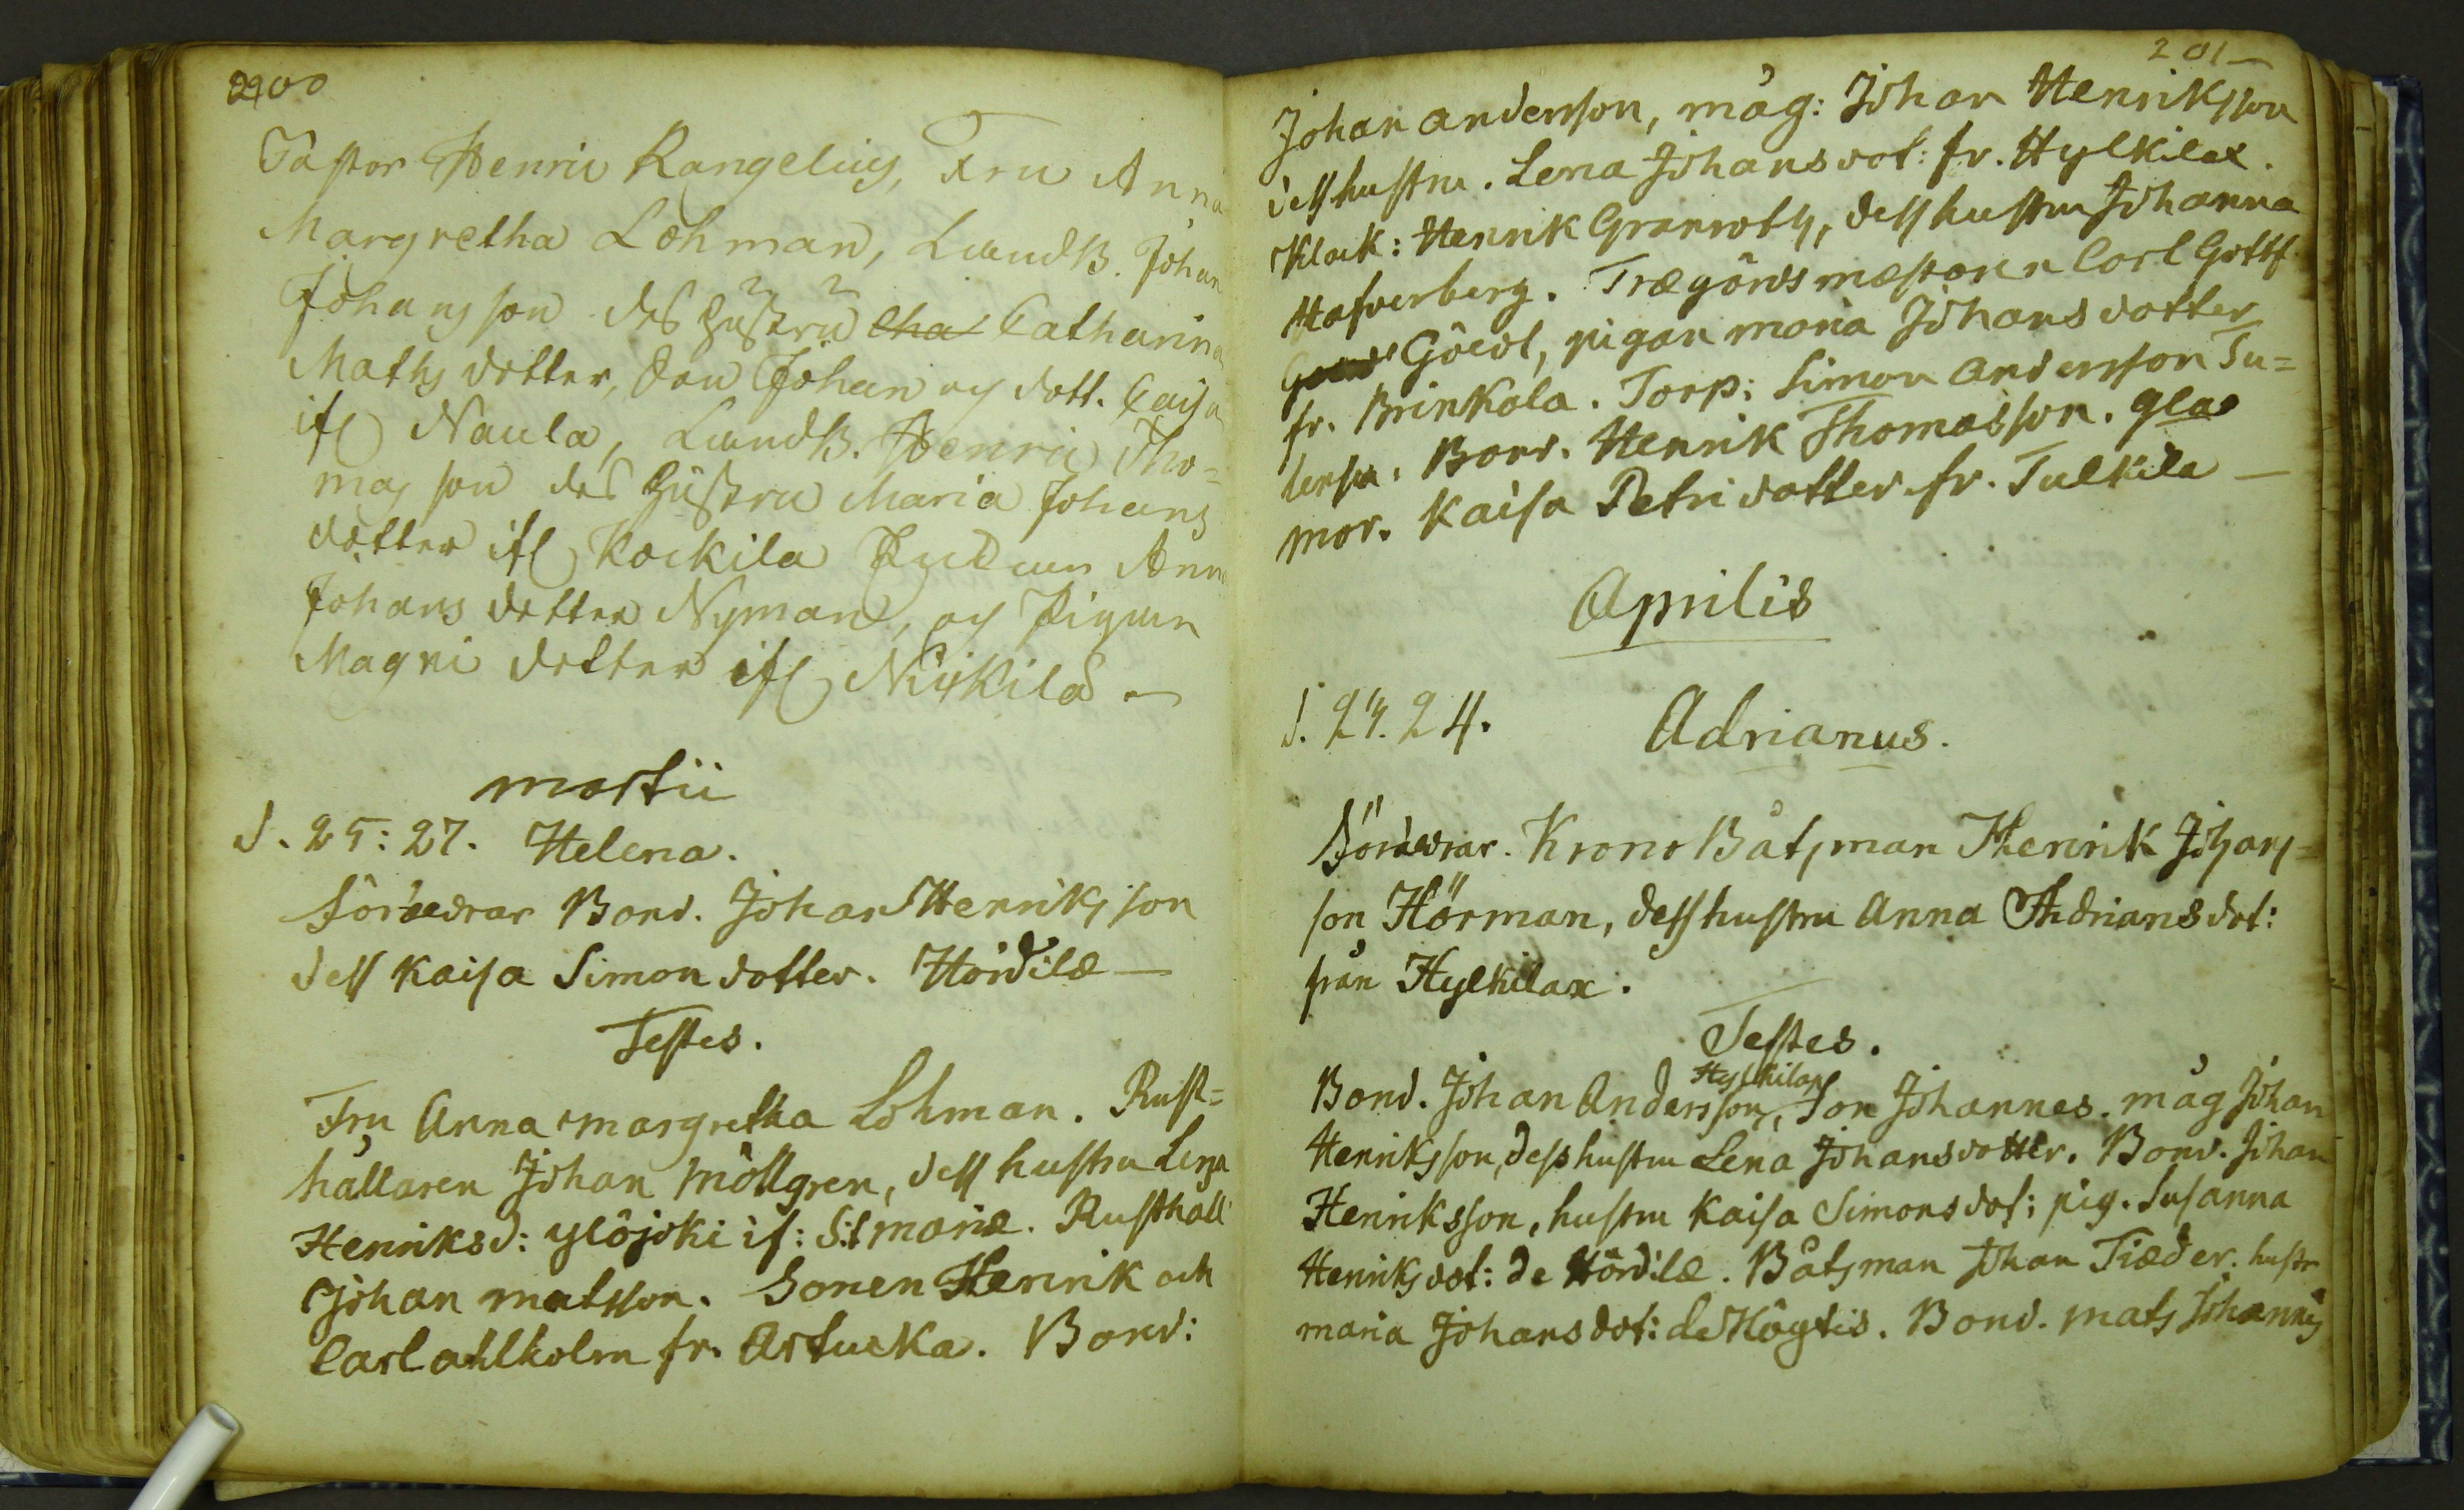 200
Pastor Henric Rangelius, Fru Anna
Margretha Lohman, Landtb. Johan
Johansson des hustru Cha Catharina
Mats dotter, Son Johan och dott. Caisa
ifr Naula, Landtb. Henric Tho=
masson des hustru Maria Johans
dotter ifr Kockila Anna
Johans dotter Nyman, och Pigan
Magni dotter ifr Nuckila
martii
d. 25: 27. Helena.
Föräldrar Bond. Johan Henriksson
dess Kaisa Simon dotter. Hördilä
Testes.
Fru Anna Margretha Lohman. Rust=
hållaren Johan Möllgren, dess hustru Lena
Henriksd: Ylöjoki if: S:t Mariæ. Rusthåll
Johan Matsson. Sonen Henrik och
Carl Ahlholm fr. Artucka. Bond:
201
Johan Andersson, måg: Johan Henriksson
dess hustru. Lena Johansdot: fr. Hylkilax.
Klock: Henrik Granroth, dess hustru Johanna
Hafverberg. Trægårdsmæstaren Carl Gottf
Göedl, pigan Maria Johans dotter
fr. Brinkala. Torp: Simon Andersson Tu=
lensu. Bond. Henrik Thomasson. gla
mor. Kaisa Petri dotter fr. Tulkila
Aprilis
d. 24. 24. Adrianus.
Föräldrar. Krono Båtsman Henrik Johans=
son Hörman, dess hustru Anna Andriansdot:
från Hylkilax.
Testes.
Hylkilax
Bond. Johan Andersson, Son Johannes. måg Johan
Henriksson, dess hustru Lena Johansdotter. Bond. Johan
Henriksson, hustru Kaisa Simonsdot: pig. Susanna
Henriksdot: de Hördilä. Båtsman Johan Tiæder. hustr
Maria Johansdot: de Högtis. Bond. Mats Johannis